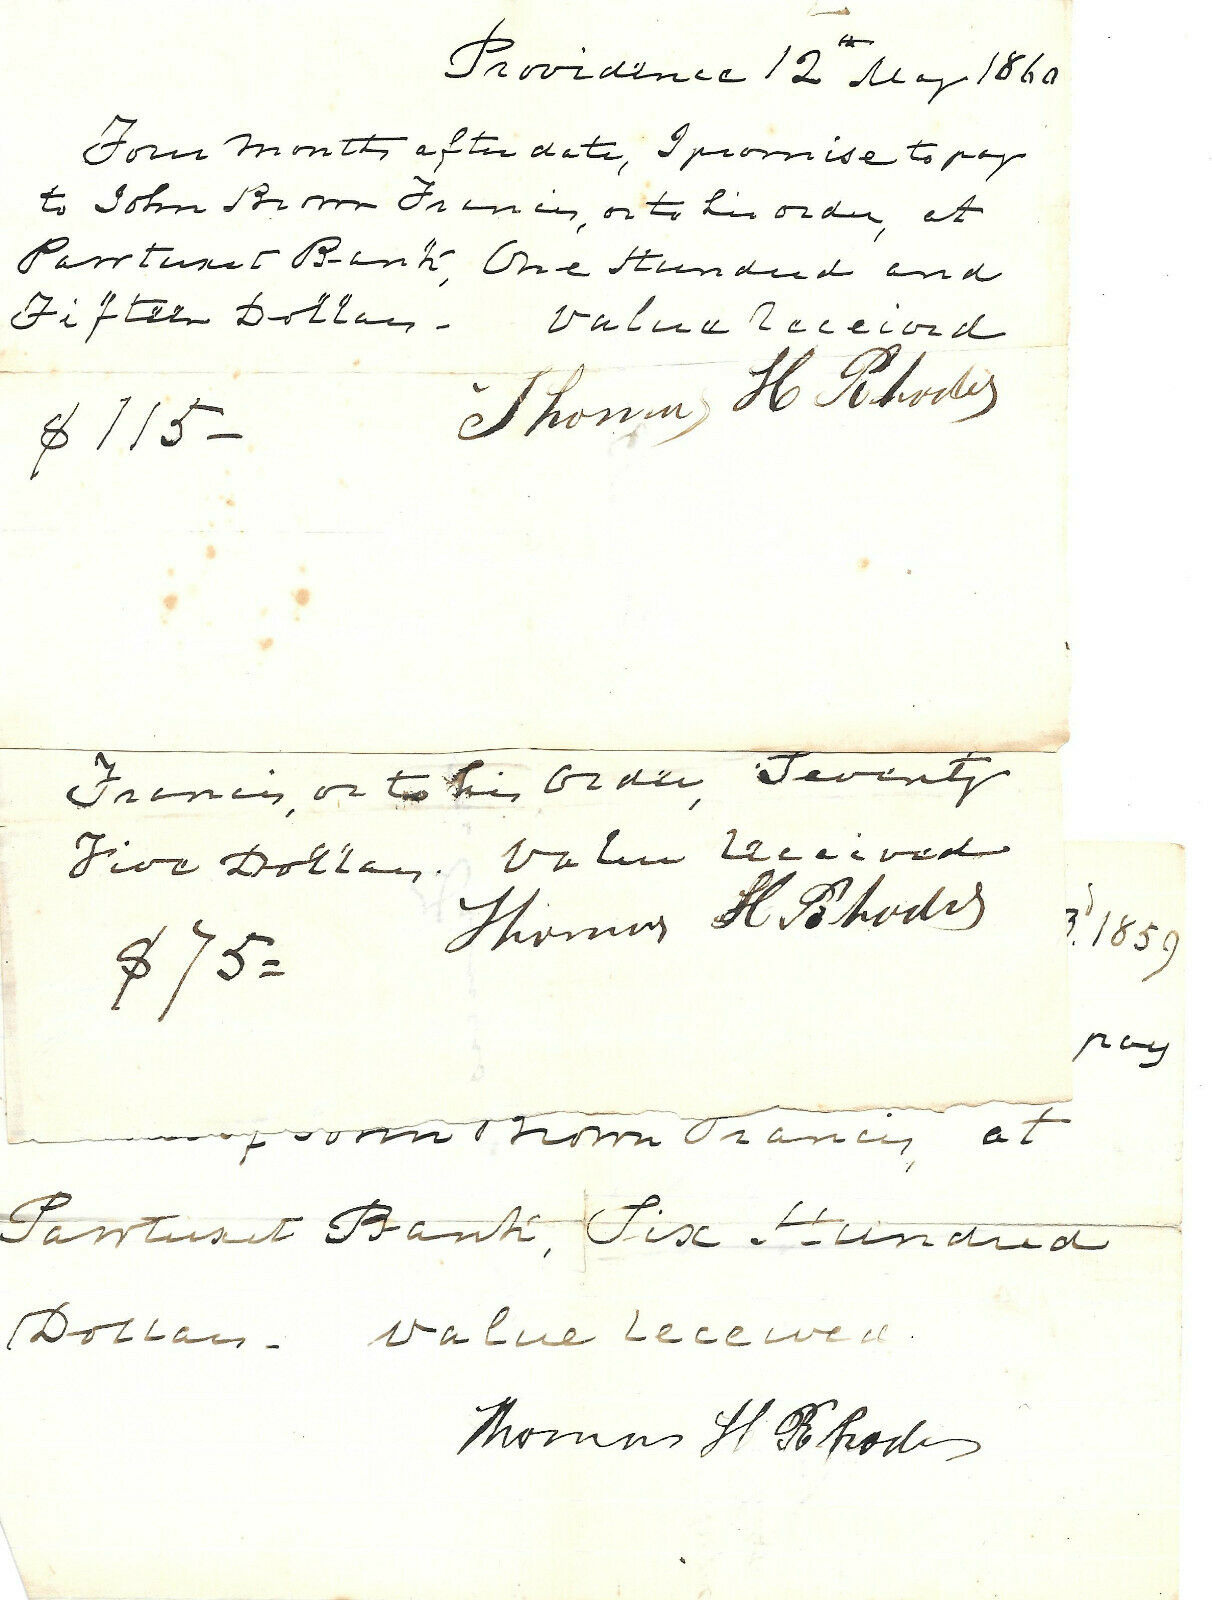 Providence 12th May 1860
Four months after date, I promise to pay
to John Brown Francis, or to his order, at
Pawtuxet Bank, One Hundred and
Fifteen Dollars. Value received
$115- Thomas H Rhodes
Francis, or to his order, Seventy
Five Dollars. Value received
$75= Thomas H Rhodes
3d. 1859
pay
of John Brown Francis, at
Pawtuxet Bank, Six Hundred
Dollars. Value received.
Thomas H Rhodes